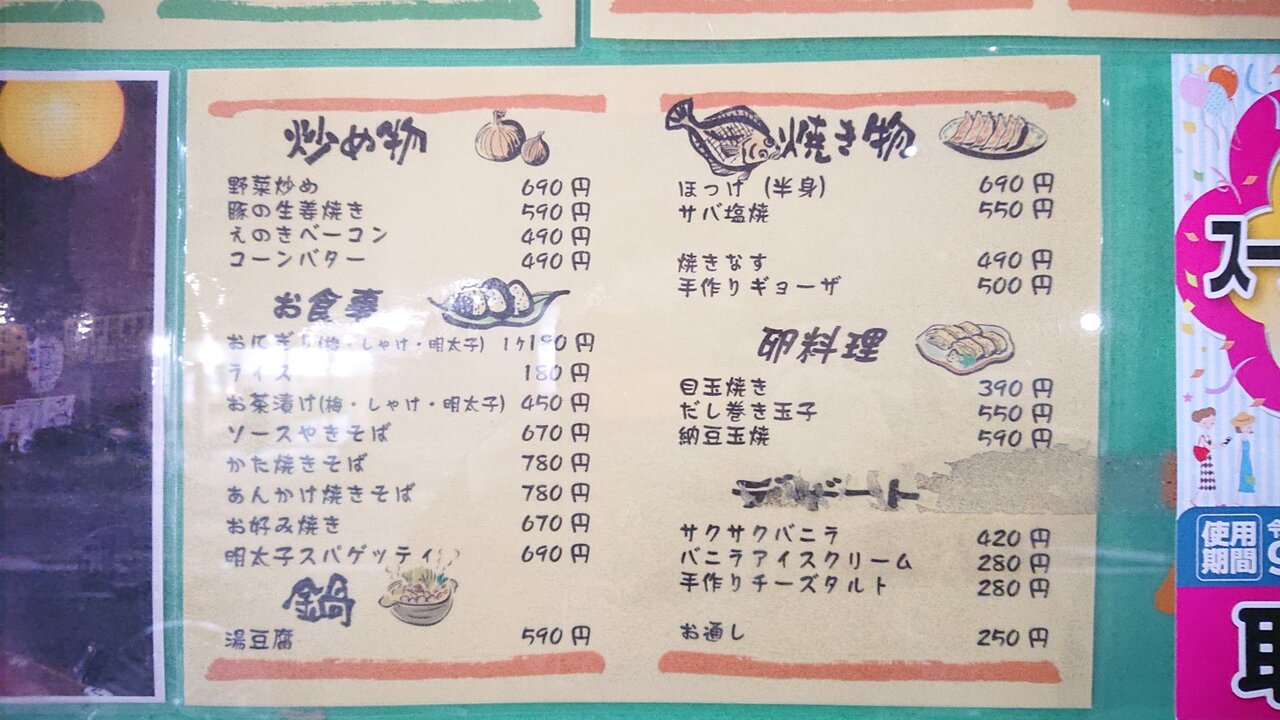 炒め物
野菜炒め 690円
豚の生姜焼き 590円
えのきベーコン 490円
コーンバター 490円
お食事
おにぎり(梅・しゃけ・明太子) 1ケ180円
ライス 180円
お茶漬け(梅・しゃけ・明太子) 450円
ソースやきそば 670円
かた焼きそば 780円
あんかけ焼きそば 780円
お好み焼き 670円
明太子スパゲッティ 690円
鍋
湯豆腐 590円
焼き物
ほっけ (半身) 690円
サバ塩焼 550円
焼きなす 490円
手作りギョーザ 500円
卵料理
目玉焼き 390円
だし巻き玉子 550円
納豆玉焼 590円
デザート
サクサクバニラ 420円
バニラアイスクリーム 280円
手作りチーズタルト 280円
お通し 250円
スー
使用
期間